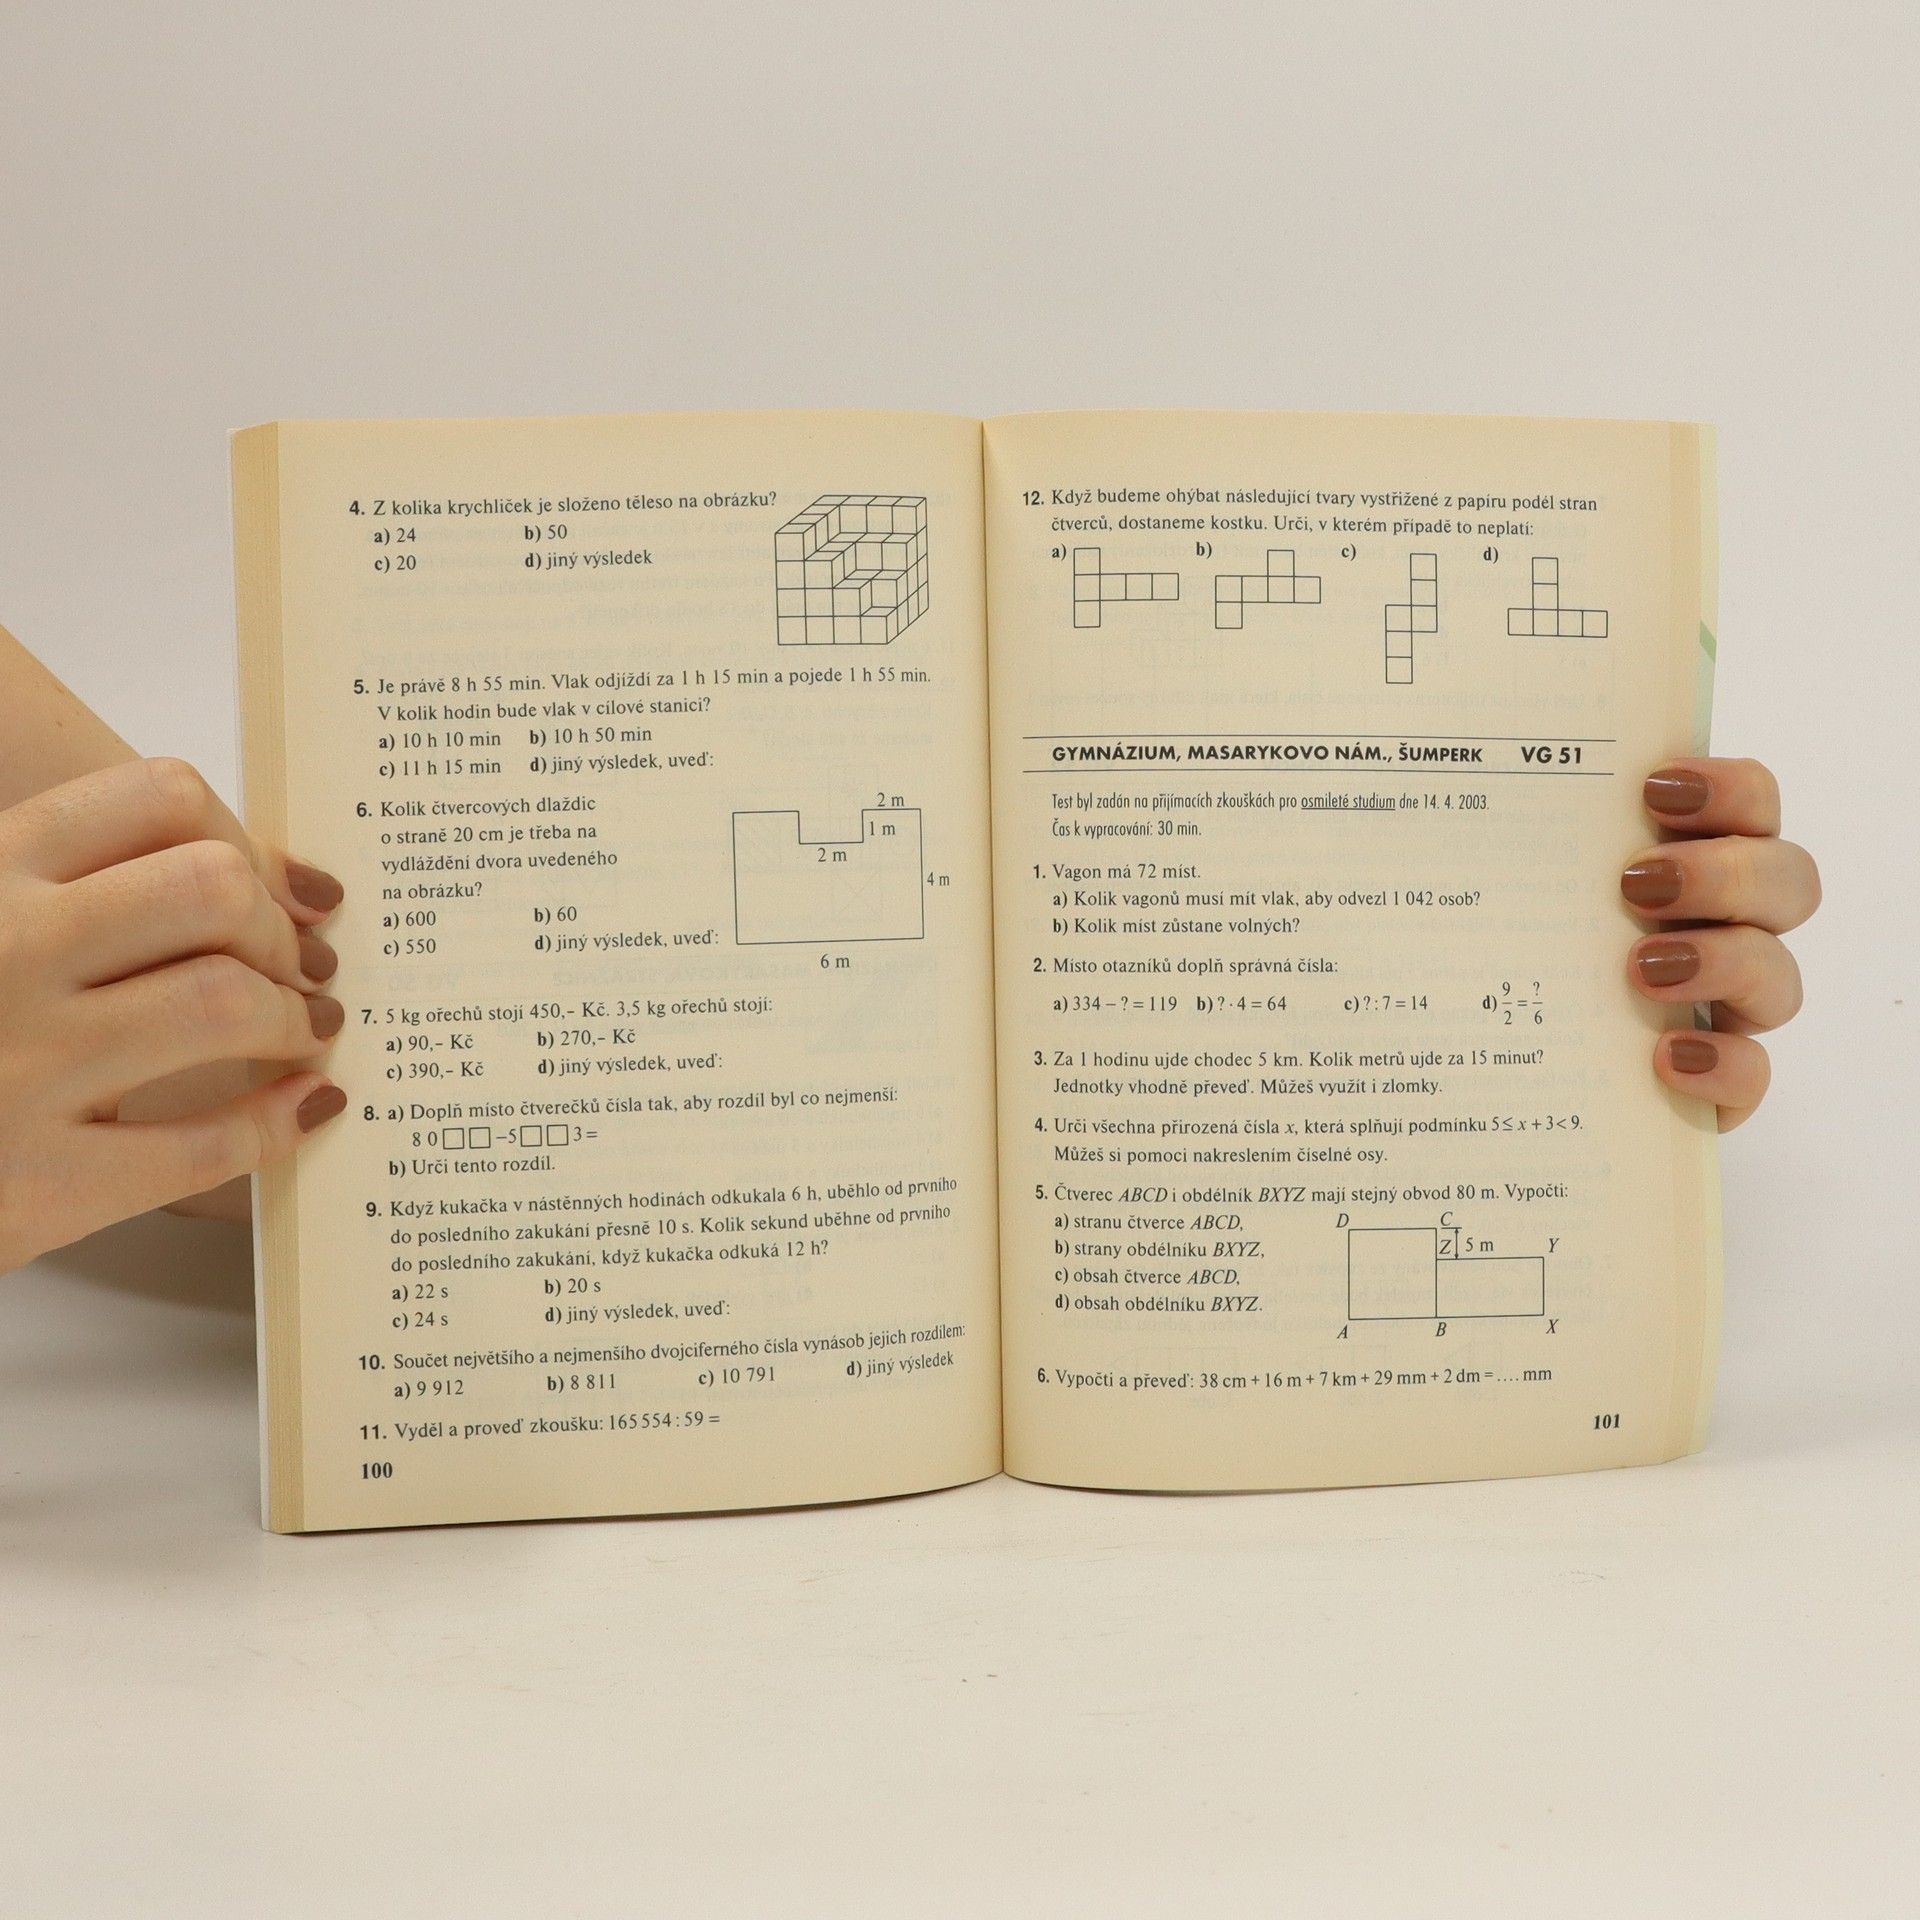 4. Z kolika krychliček je složeno těleso na obrázku?
a) 24 b) 50
c) 20 d) jiný výsledek
5. Je právě 8 h 55 min. Vlak odjíždí za 1 h 15 min a pojede 1 h 55 min.
V kolik hodin bude vlak v cílové stanici?
a) 10 h 10 min b) 10 h 50 min
c) 11 h 15 min d) jiný výsledek, uveď:
6. Kolik čtvercových dlaždic
o straně 20 cm je třeba na
vydláždění dvora uvedeného
na obrázku?
a) 600 b) 60
c) 550 d) jiný výsledek, uveď:
2 m
1 m
2 m
4 m
6 m
7. 5 kg ořechů stojí 450,– Kč. 3,5 kg ořechů stojí:
a) 90,– Kč b) 270,– Kč
c) 390,– Kč d) jiný výsledek, uveď:
8. a) Doplň místo čtverečků čísla tak, aby rozdíl byl co nejmenší:
8 0 □ □ – 5 □ □ 3 =
b) Urči tento rozdíl.
9. Když kukačka v nástěnných hodinách odkukala 6 h, uběhlo od prvního
do posledního zakukání přesně 10 s. Kolik sekund uběhne od prvního
do posledního zakukání, když kukačka odkuká 12 h?
a) 22 s b) 20 s
c) 24 s d) jiný výsledek, uveď:
10. Součet největšího a nejmenšího dvojciferného čísla vynásob jejich rozdílem:
a) 9 912 b) 8 811 c) 10 791 d) jiný výsledek
11. Vyděl a proveď zkoušku: 165 554 : 59 =
100
12. Když budeme ohýbat následující tvary vystřižené z papíru podél stran
čtverců, dostaneme kostku. Urči, v kterém případě to neplatí:
a) b) c) d)
GYMNÁZIUM, MASARYKOVO NÁM., ŠUMPERK VG 51
Test byl zadán na přijímacích zkouškách pro osmileté studium dne 14. 4. 2003.
Čas k vypracování: 30 min.
1. Vagon má 72 míst.
a) Kolik vagonů musí mít vlak, aby odvezl 1 042 osob?
b) Kolik míst zůstane volných?
2. Místo otazníků doplň správná čísla:
a) 334 – ? = 119 b) ? · 4 = 64 c) ? : 7 = 14 d) 9/2 = ?/6
3. Za 1 hodinu ujde chodec 5 km. Kolik metrů ujde za 15 minut?
Jednotky vhodně převeď. Můžeš využít i zlomky.
4. Urči všechna přirozená čísla x, která splňují podmínku 5 ≤ x + 3 < 9.
Můžeš si pomoci nakreslením číselné osy.
5. Čtverec ABCD i obdélník BXYZ mají stejný obvod 80 m. Vypočti:
a) stranu čtverce ABCD,
b) strany obdélníku BXYZ,
c) obsah čtverce ABCD,
d) obsah obdélníku BXYZ.
D C
Z 5 m Y
A B X
6. Vypočti a převeď: 38 cm + 16 m + 7 km + 29 mm + 2 dm = .... mm
101